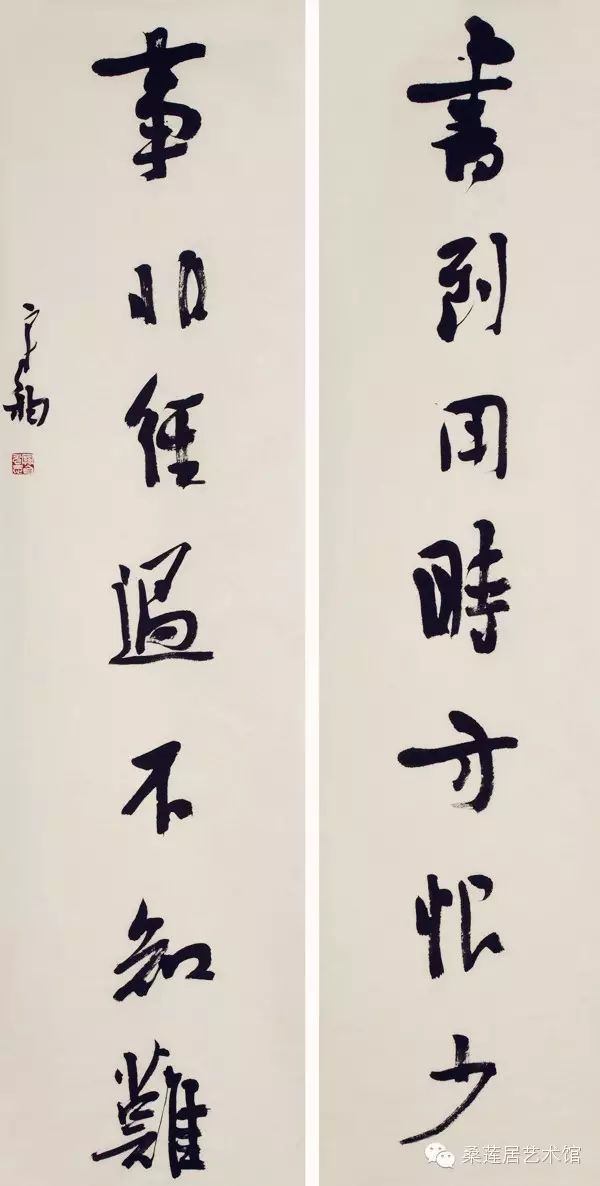 書到用時方恨少
事非經過不知難
桑莲居艺术馆